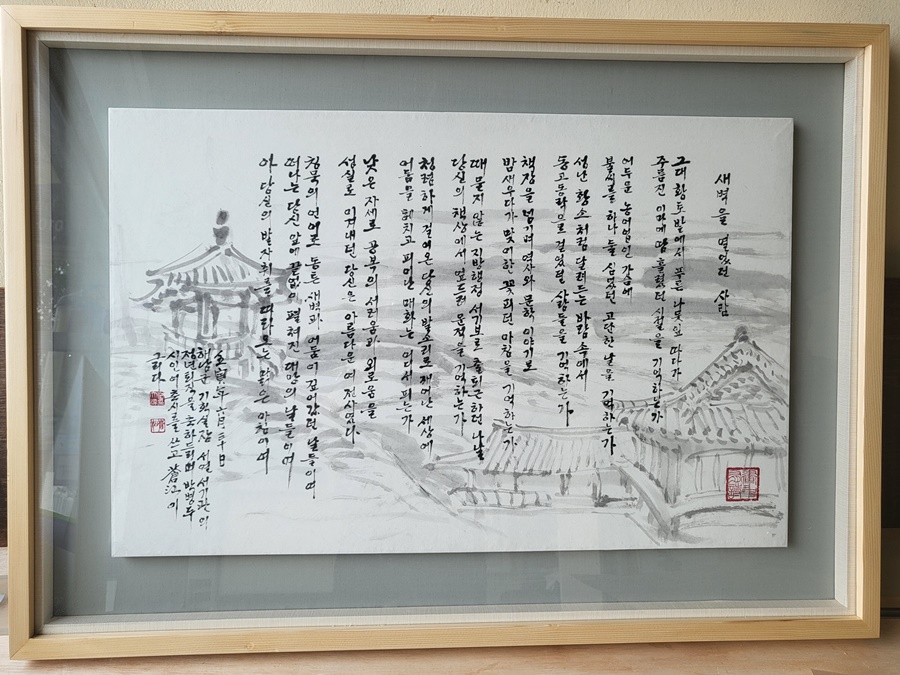 새벽을 열었던 사람
그대 황토밭에서 푸른 나뭇잎 따다가
주름진 이마에 땀 흘렸던 시절을 기억하는가
어두운 농어업인 가슴에
불씨를 하나 둘 심었던 고단한 날을 기억하는가
성난 황소처럼 달려드는 바람 속에서
동고동락으로 걸었던 사람들을 기억하는가
책장을 넘기며 역사와 문학 이야기로
밤새우다가 맞이한 꽃피던 아침을 기억하는가
때묻지 않는 지방행정 서기보로 출퇴근하던 나날
당신의 책상에서 엎드려 운적을 기억하는가
청렴하게 걸어온 당신의 발소리로 깨어난 세상에
어둠을 헤치고 피어난 매화는 어디서 피는가
낮은 자세로 공복의 서러움과 외로움을
성실로 이겨내던 당신은 아름다운 여전사였다
침묵의 언어로 동튼 새벽과 어둠이 깊어갔던 날들이여
떠나는 당신 앞에 끝없이 펼쳐진 대망의 날들이여
아 당신의 발자취를 따라오는 맑은 아침이여
壬寅年 六月 三十日
해남군 기획실장 서연 서기관의
정년퇴직을 축하드리며 박병두
시인이 축시를 쓰고 蒼江이
그리다